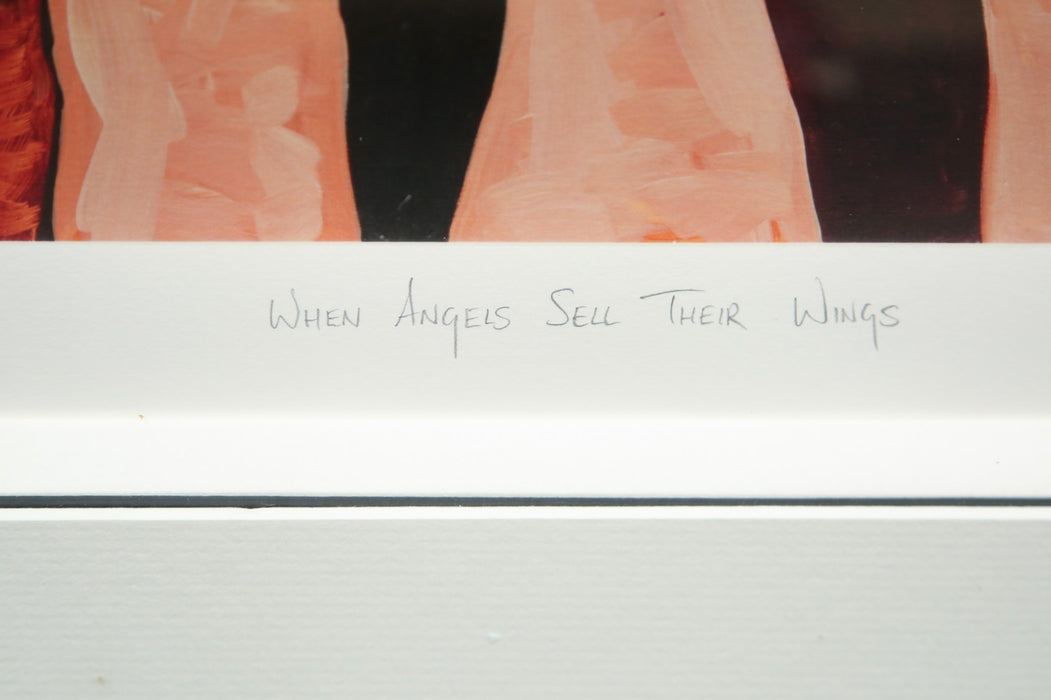 When Angels Sell Their Wings